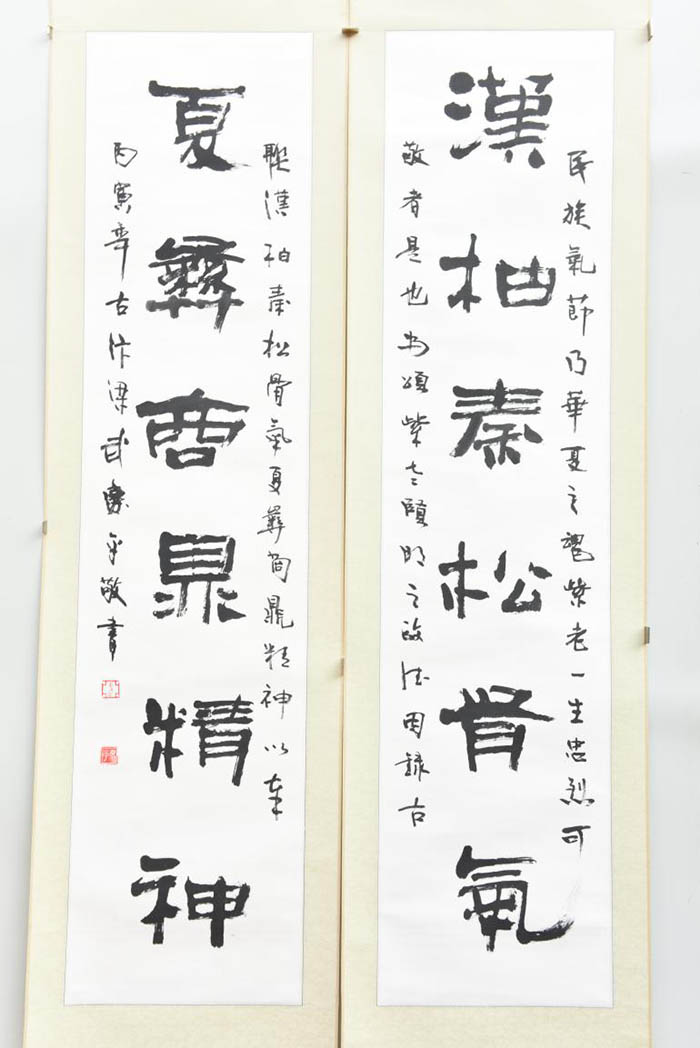 民族氣節乃華夏之魂柴老一生忠烈可
漢柏秦松骨氣
敬者是也為頌柴老頤明之德因錄古
聯漢柏秦松骨氣夏彝商鼎精神以奉
夏彝商鼎精神
丙寅年古汴梁武平敬書